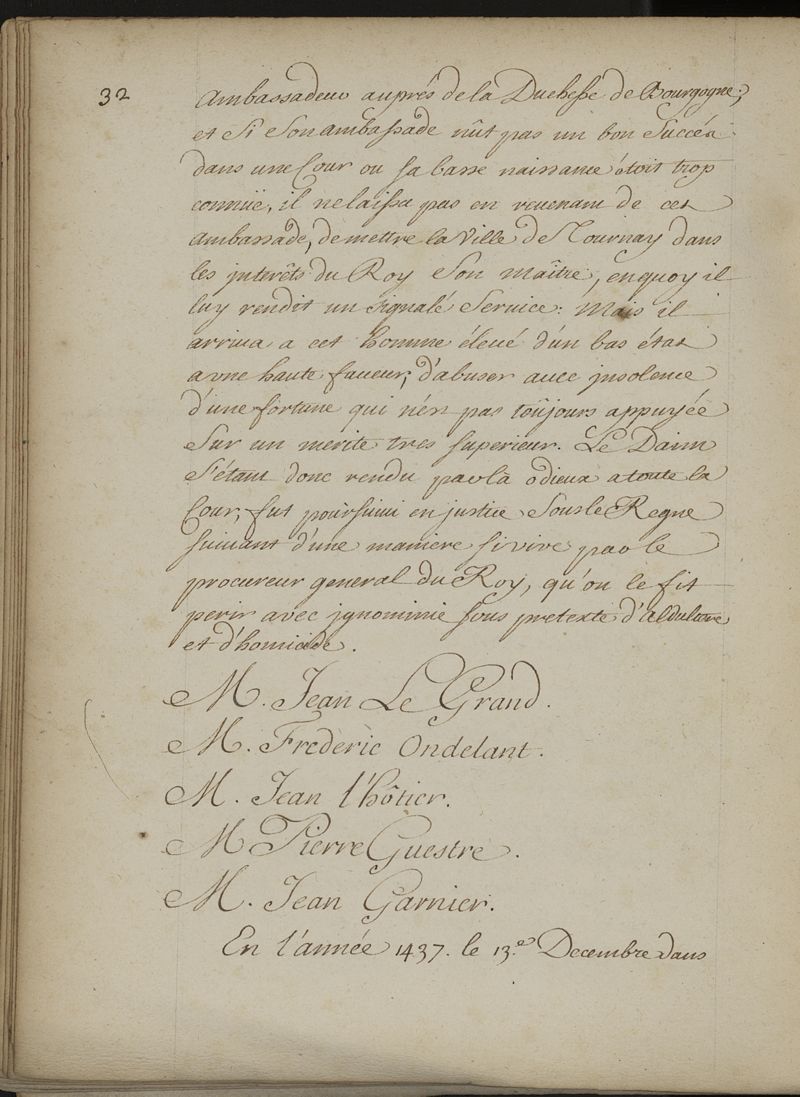 32
Ambassadeur auprés de la Duchesse de Bourgogne;
et Si Son ambassade nût pas un bon Succés
dans une Cour ou sa basse naissance étoit trop
connüe, il ne laissa pas en revenant de cet
ambassade, de mettre la Ville de Tournay dans
les interêts du Roy Son maître, en quoy il
luy rendit un signalé Service: Mais il
arriva a cet homme élevé d'un bas état
a vne haute faveur, d'abuser avec insolence
d'une fortune qui n'én pas toûjours appuyée
Sur un merite tres superieur. Le Daim
S'étant donc rendu par là odieux a toute la
Cour, fut poursuivi en justice Sous le Regne
suivant d'une maniere si vive par le
procureur general du Roy, qu'on le fit
perir avec ignominie sous pretexte d'aldultere
et d'homicide.
M. Jean Le Grand.
M. Frederic Ondelant.
M. Jean l'hôtier.
M Pierre Guestre.
M. Jean Garnier.
En l'année 1437. le 13.e Decembre dans